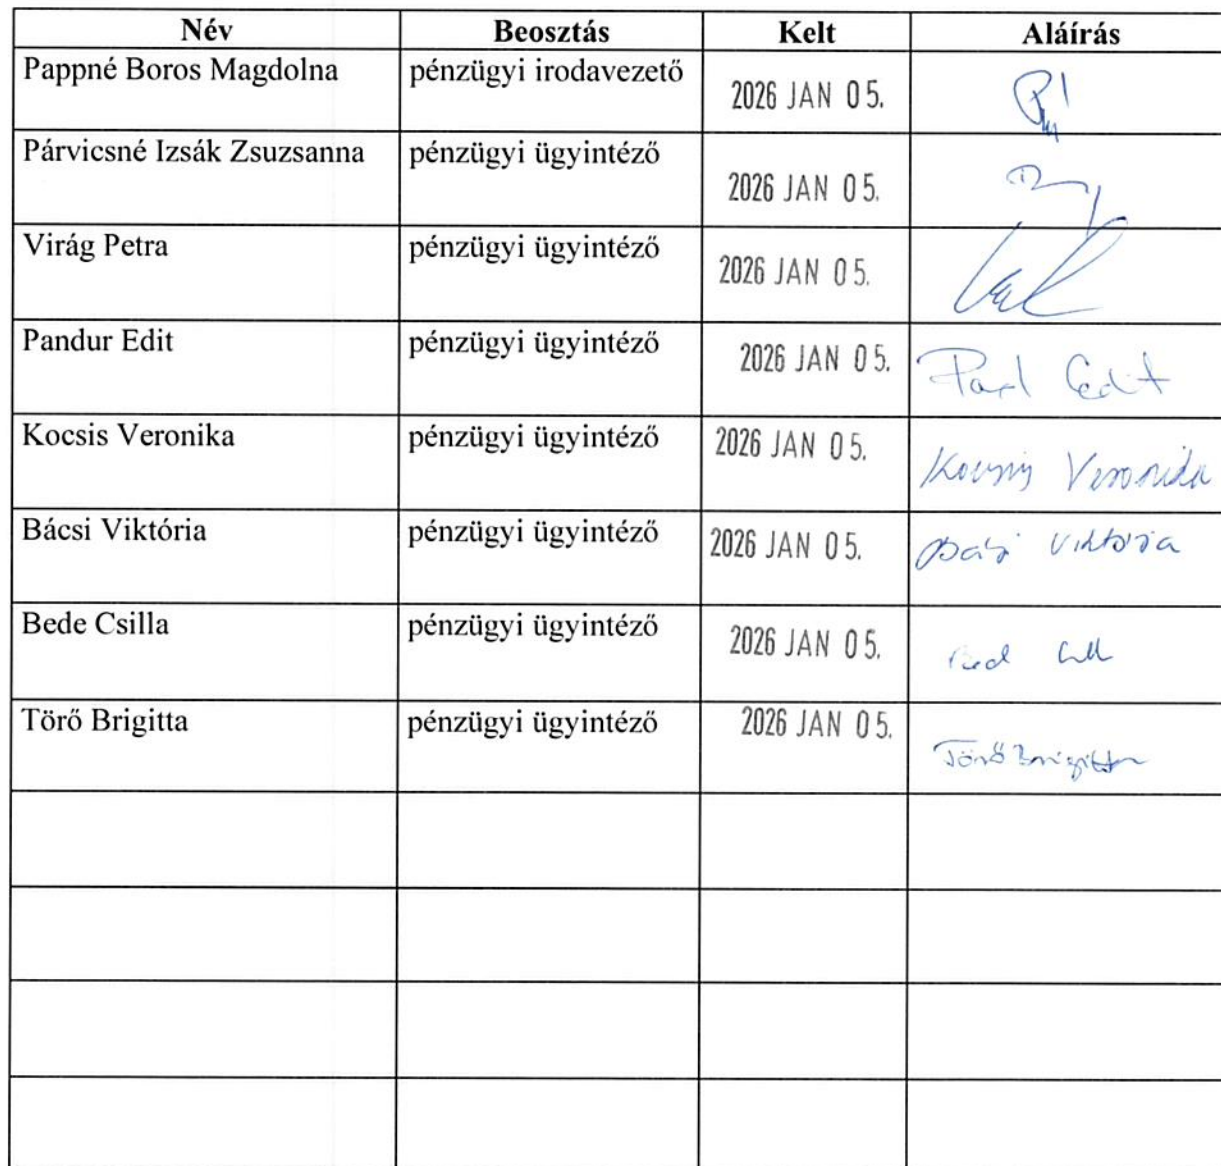 Név Beosztás Kelt Aláírás
Pappné Boros Magdolna pénzügyi irodavezető 2026 JAN 05.
Párvicsné Izsák Zsuzsanna pénzügyi ügyintéző 2026 JAN 05.
Virág Petra pénzügyi ügyintéző 2026 JAN 05.
Pandur Edit pénzügyi ügyintéző 2026 JAN 05.
Kocsis Veronika pénzügyi ügyintéző 2026 JAN 05. Kocsis Veronika
Bácsi Viktória pénzügyi ügyintéző 2026 JAN 05. Bácsi Viktória
Bede Csilla pénzügyi ügyintéző 2026 JAN 05.
Törő Brigitta pénzügyi ügyintéző 2026 JAN 05. Törő Brigitta